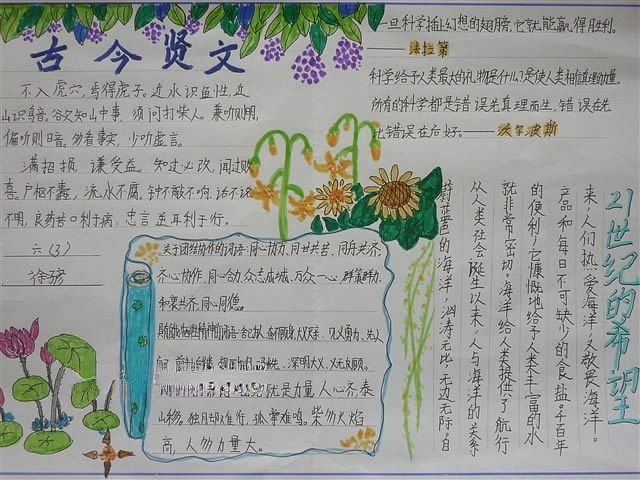 古今贤文
不入虎穴，焉得虎子。近水识鱼性，近
山识鸟音。欲知山中事，须问打柴人。兼听则明，
偏听则暗。多看事实，少听虚言。
满招损，谦受益。知过必改，闻过则
喜。户枢不蠹，流水不腐。钟不敲不响，话不说
不明，良药苦口利于病，忠言逆耳利于行。
六（3）
徐彦
一旦科学插上幻想的翅膀，它就能赢得胜利。
——法拉第
科学给予人类最大的礼物是什么？是使人类相信真理的力量。
所有的科学都是错误先真理而生，错误在先
比错误在后好。——沃尔皮斯
关于团结协作的词语：同心协力、同甘共苦、同舟共济、
齐心协作、同心合力、众志成城、万众一心、群策群力、
和衷共济、同心同德。
见义勇为、先人
深明大义、义无反顾。
就是力量 人心齐，泰
山移。独脚难行，孤掌难鸣。柴多火焰
高，人多力量大。
21世纪的希望
蔚蓝色的海洋，汹涛无比，无边无际，自
从人类社会诞生以来，人与海洋的关系
就非常密切。海洋给人类提供了航行
的便利；它慷慨地给予人类丰富的水
产品和每日不可缺少的食盐。千百年
来，人们热爱海洋，又敬畏海洋。